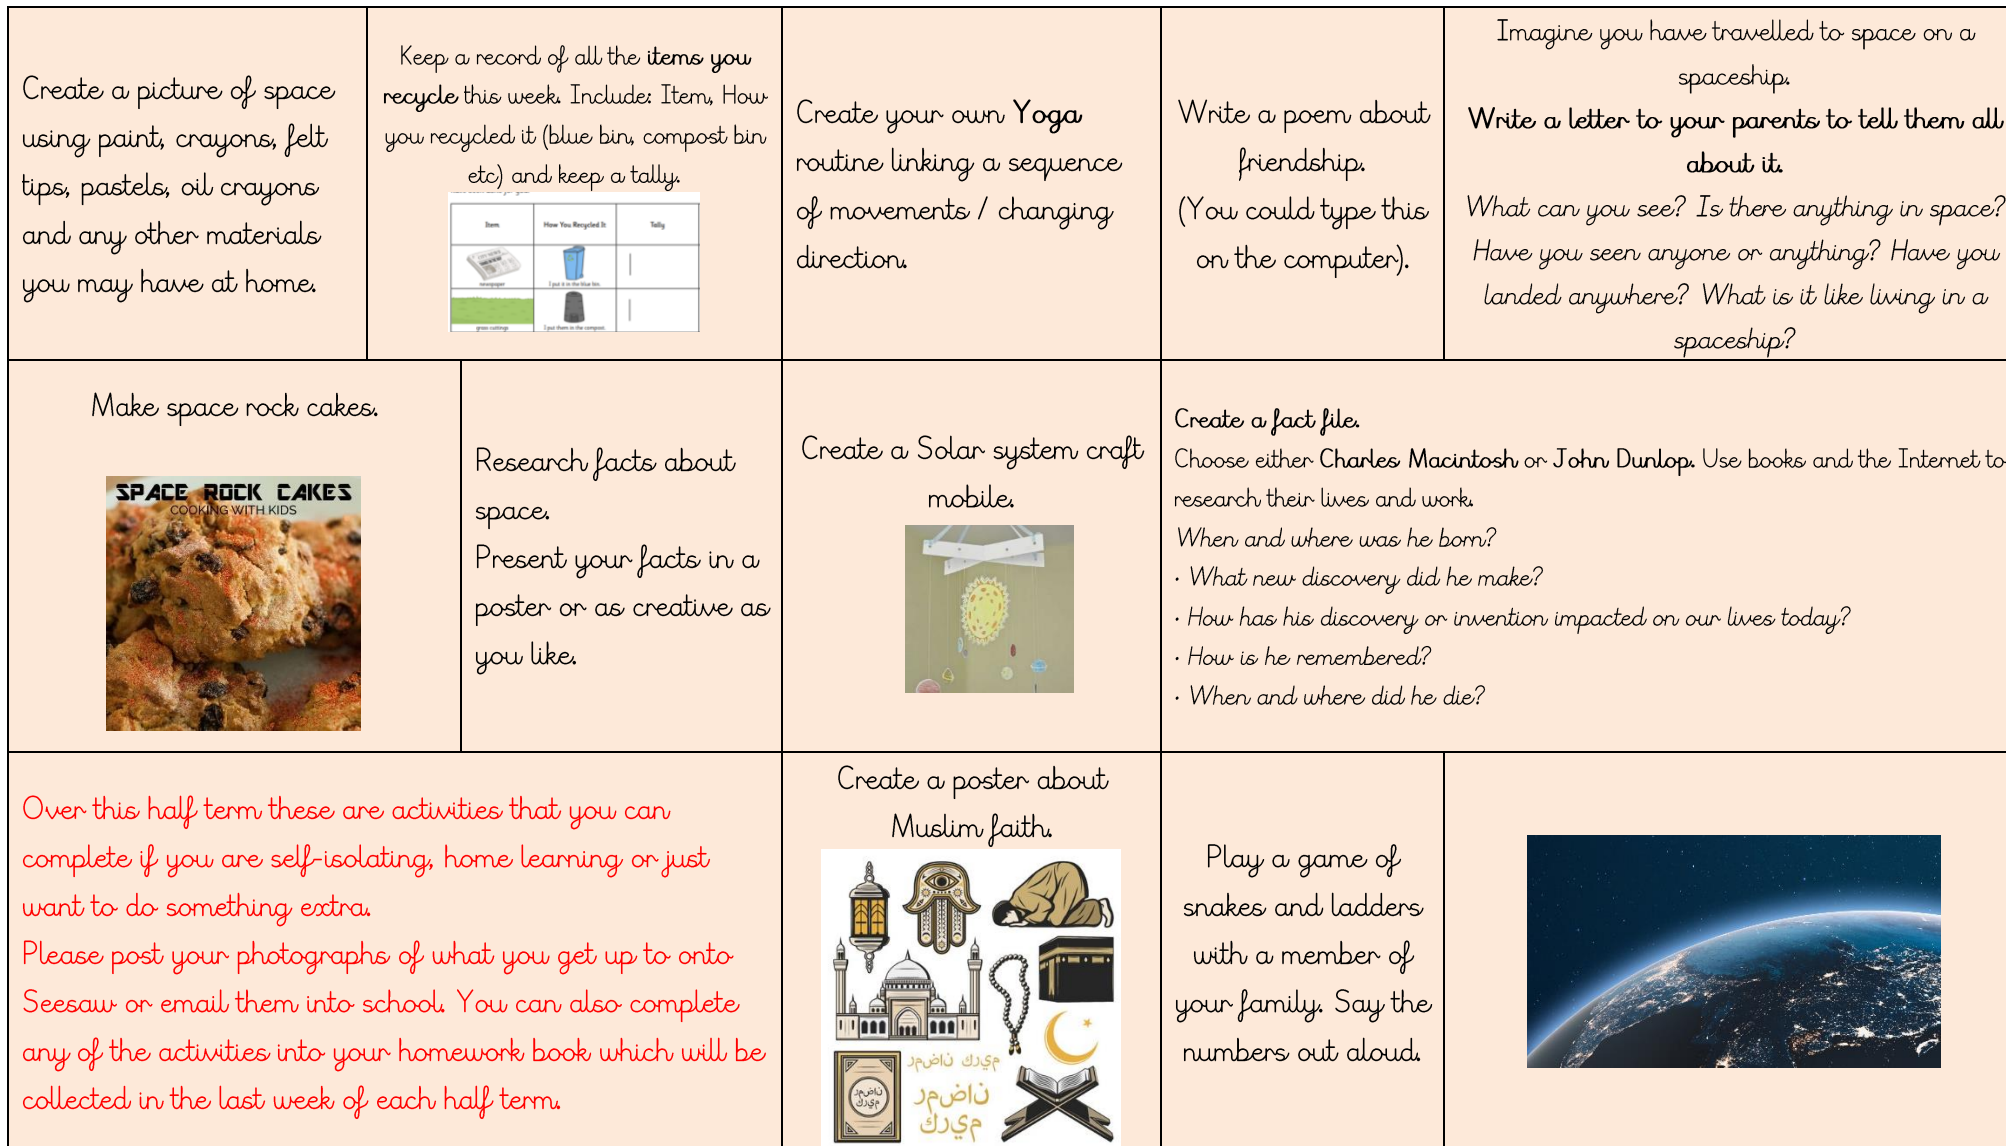 Create a picture of space
using paint, crayons, felt
tips, pastels, oil crayons
and any other materials
you may have at home.
Keep a record of all the items you
recycle this week. Include: Item, How
you recycled it (blue bin, compost bin
etc) and keep a tally.
Item
How You Recycled It
Tally
newspaper
I put it in the blue bin.
grass cuttings
I put them in the compost.
Create your own Yoga
routine linking a sequence
of movements / changing
direction.
Write a poem about
friendship.
(You could type this
on the computer).
Imagine you have travelled to space on a
spaceship.
Write a letter to your parents to tell them all
about it.
What can you see? Is there anything in space?
Have you seen anyone or anything? Have you
landed anywhere? What is it like living in a
spaceship?
Make space rock cakes.
SPACE ROCK CAKES
COOKING WITH KIDS
Research facts about
space.
Present your facts in a
poster or as creative as
you like.
Create a Solar system craft
mobile.
Create a fact file.
Choose either Charles Macintosh or John Dunlop. Use books and the Internet to
research their lives and work.
When and where was he born?
• What new discovery did he make?
• How has his discovery or invention impacted on our lives today?
• How is he remembered?
• When and where did he die?
Over this half term these are activities that you can
complete if you are self-isolating, home learning or just
want to do something extra.
Please post your photographs of what you get up to onto
Seesaw or email them into school. You can also complete
any of the activities into your homework book which will be
collected in the last week of each half term.
Create a poster about
Muslim faith.
Play a game of
snakes and ladders
with a member of
your family. Say the
numbers out aloud.